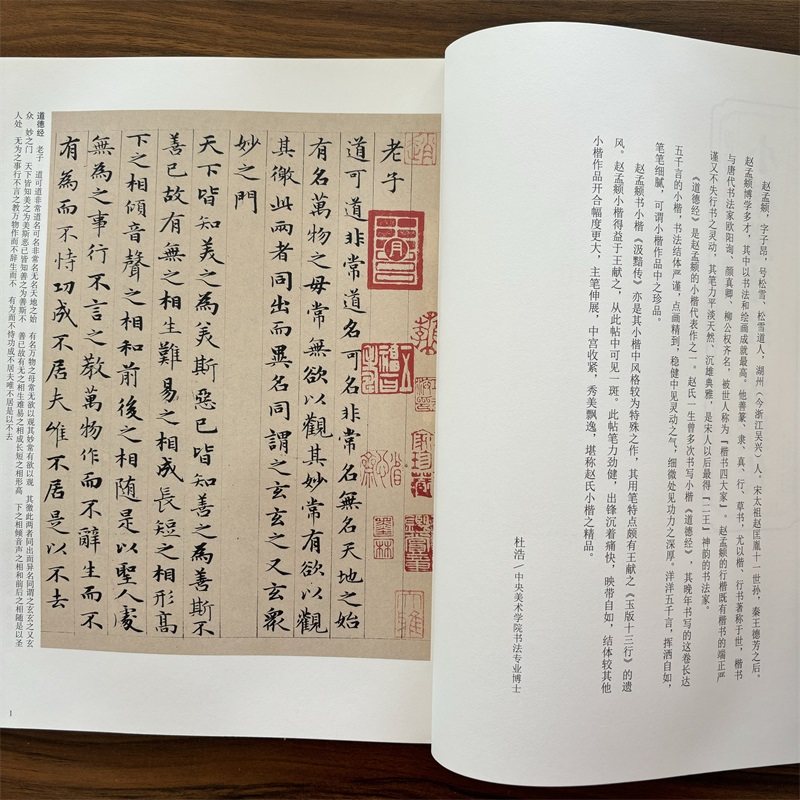 赵孟頫，字子昂，号松雪、松雪道人，湖州（今浙江吴兴）人，宋太祖赵匡胤十一世孙，秦王德芳之后。
赵孟頫博学多才，其中以书法和绘画成就最高。他善篆、隶、真、行、草书，尤以楷、行书著称于世，楷书
与唐代书法家欧阳询、颜真卿、柳公权齐名，被世人称为『楷书四大家』。赵孟頫的行楷既有楷书的端正严
谨又不失行书之灵动，其笔力平淡天然、沉雄典雅，是宋人以后最得『二王』神韵的书法家。
《道德经》是赵孟頫的小楷代表作之一。赵氏一生曾多次书写小楷《道德经》，其晚年书写的这卷长达
五千言的小楷，书法结体严谨，点画精到，稳健中见灵动之气，细微处见功力之深厚。洋洋五千言，挥洒自如，
笔笔细腻，可谓小楷作品中之珍品。
赵孟頫书小楷《汲黯传》亦是其小楷中风格较为特殊之作，其用笔特点颇有王献之《玉版十三行》的遗
风。赵孟頫小楷得益于王献之，从此帖中可见一斑。此帖笔力劲健，出锋沉着痛快，映带自如，结体较其他
小楷作品开合幅度更大，主笔伸展，中宫收紧，秀美飘逸，堪称赵氏小楷之精品。
杜浩/中央美术学院书法专业博士
老子
道可道非常道名可名非常名無名天地之始
有名萬物之母常無欲以觀其妙常有欲以觀
其徼此两者同出而異名同謂之玄玄之又玄衆
妙之門
天下皆知美之為美斯惡已皆知善之為善斯不
善已故有無之相生難易之相成長短之相形高
下之相傾音聲之相和前後之相随是以聖人處
無為之事行不言之教萬物作而不辭生而不
有為而不恃功成不居夫唯不居是以不去
道德经 老子 道可道非常道名可名非常名无名天地之始 有名万物之母常无欲以观其妙常有欲以观 其徼此两者同出而异名同谓之玄玄之又玄
众 妙之门 天下皆知美之为美斯恶已皆知善之为善斯不 善已故有无之相生难易之相成长短之相形高 下之相倾音声之相和前后之相随是以圣
人处 无为之事行不言之教万物作而不辞生而不 有为而不恃功成不居夫唯不居是以不去
1